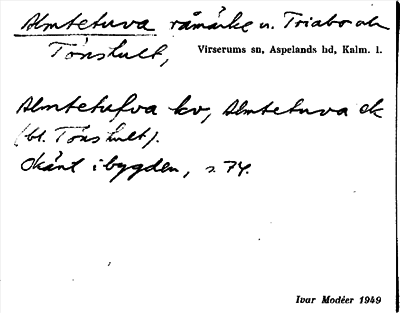 Almtetuva råmärke n. Triabo och
Tönshult, Virserums sn, Aspelands hd, Kalm. l.
Almtetufva kv, Almtetuva ek
(bl. Tönshult).
Okänt i bygden, s. 74.
Ivar Modéer 1949